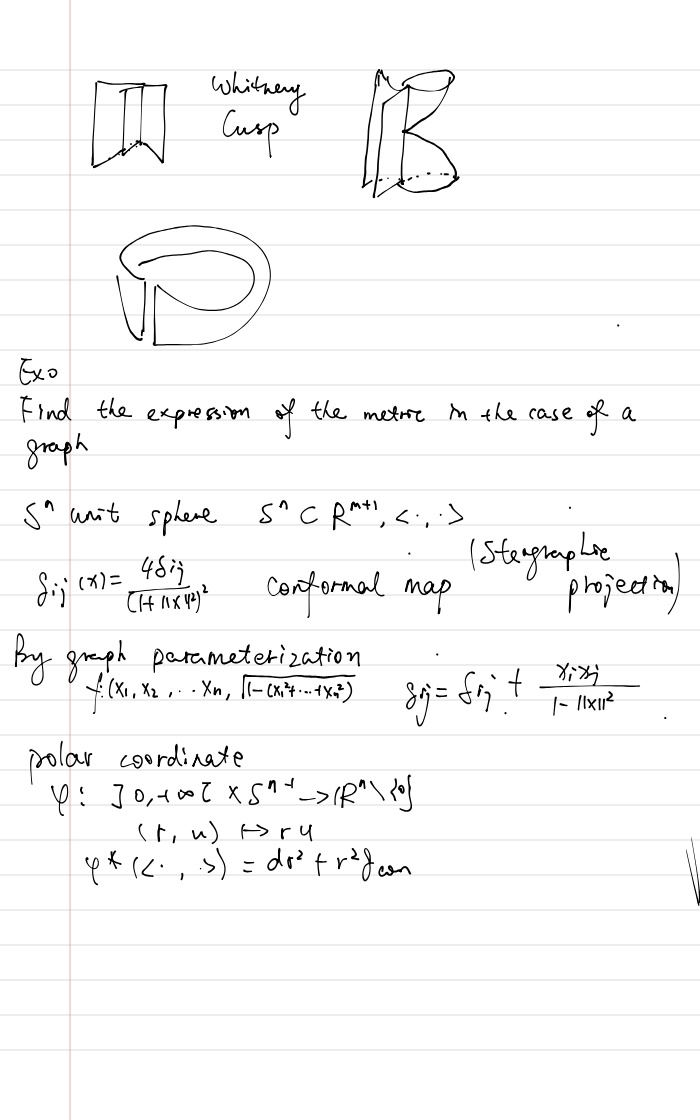 Whitney
Cusp
Exo
Find the expression of the metric in the case of a
graph
Sⁿ unit sphere Sⁿ ⊂ Rᵐ⁺¹, <·,·>
gᵢⱼ(x) = 4δᵢⱼ / (1+||x||²)² conformal map (Stergraphic
projection)
By graph parameterization
f: (x₁, x₂, ... xₙ, √(1-(x₁²+...+xₙ²)) gᵢⱼ = δᵢⱼ + xᵢxⱼ / (1-||x||²)
polar coordinate
φ: ]0,+∞[ × Sⁿ⁻¹ → (Rⁿ\{0}
(r, u) ↦ ru
φ*(<·,·>) = dr² + r²g can